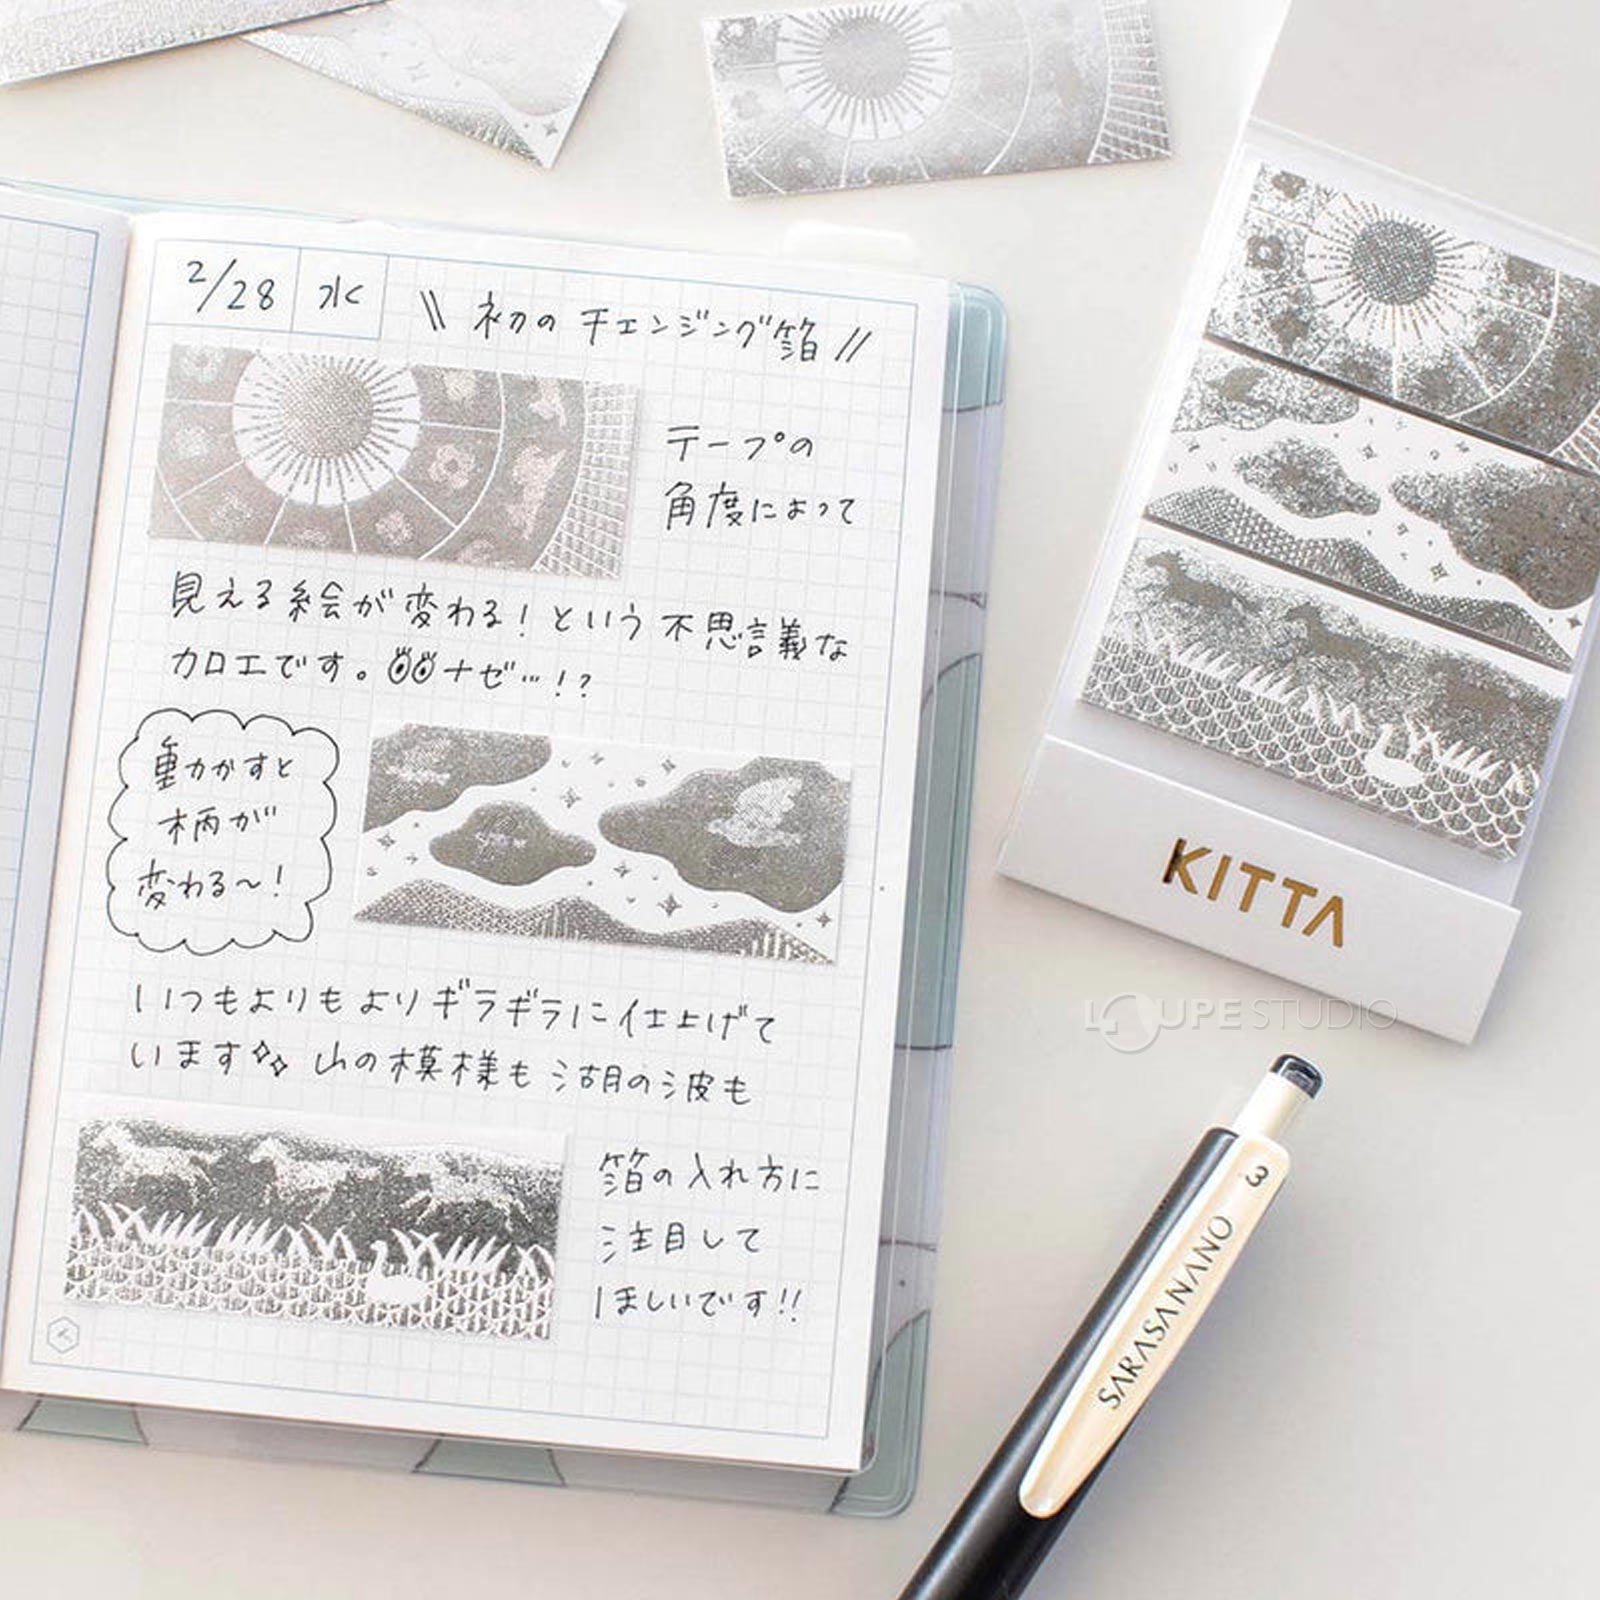 2/28 水 \\ 初のチェンジング箔 //
テープの
角度によって
見える絵が変わる！という不思議な
加工です。ナゼ…!?
動かすと
柄が
変わる〜!
いつもよりもよりギラギラに仕上げて
います 山の模様も湖の波も
箔の入れ方に
注目して
ほしいです!!
KITTA
LOUPE STUDIO
3
SARASANANO